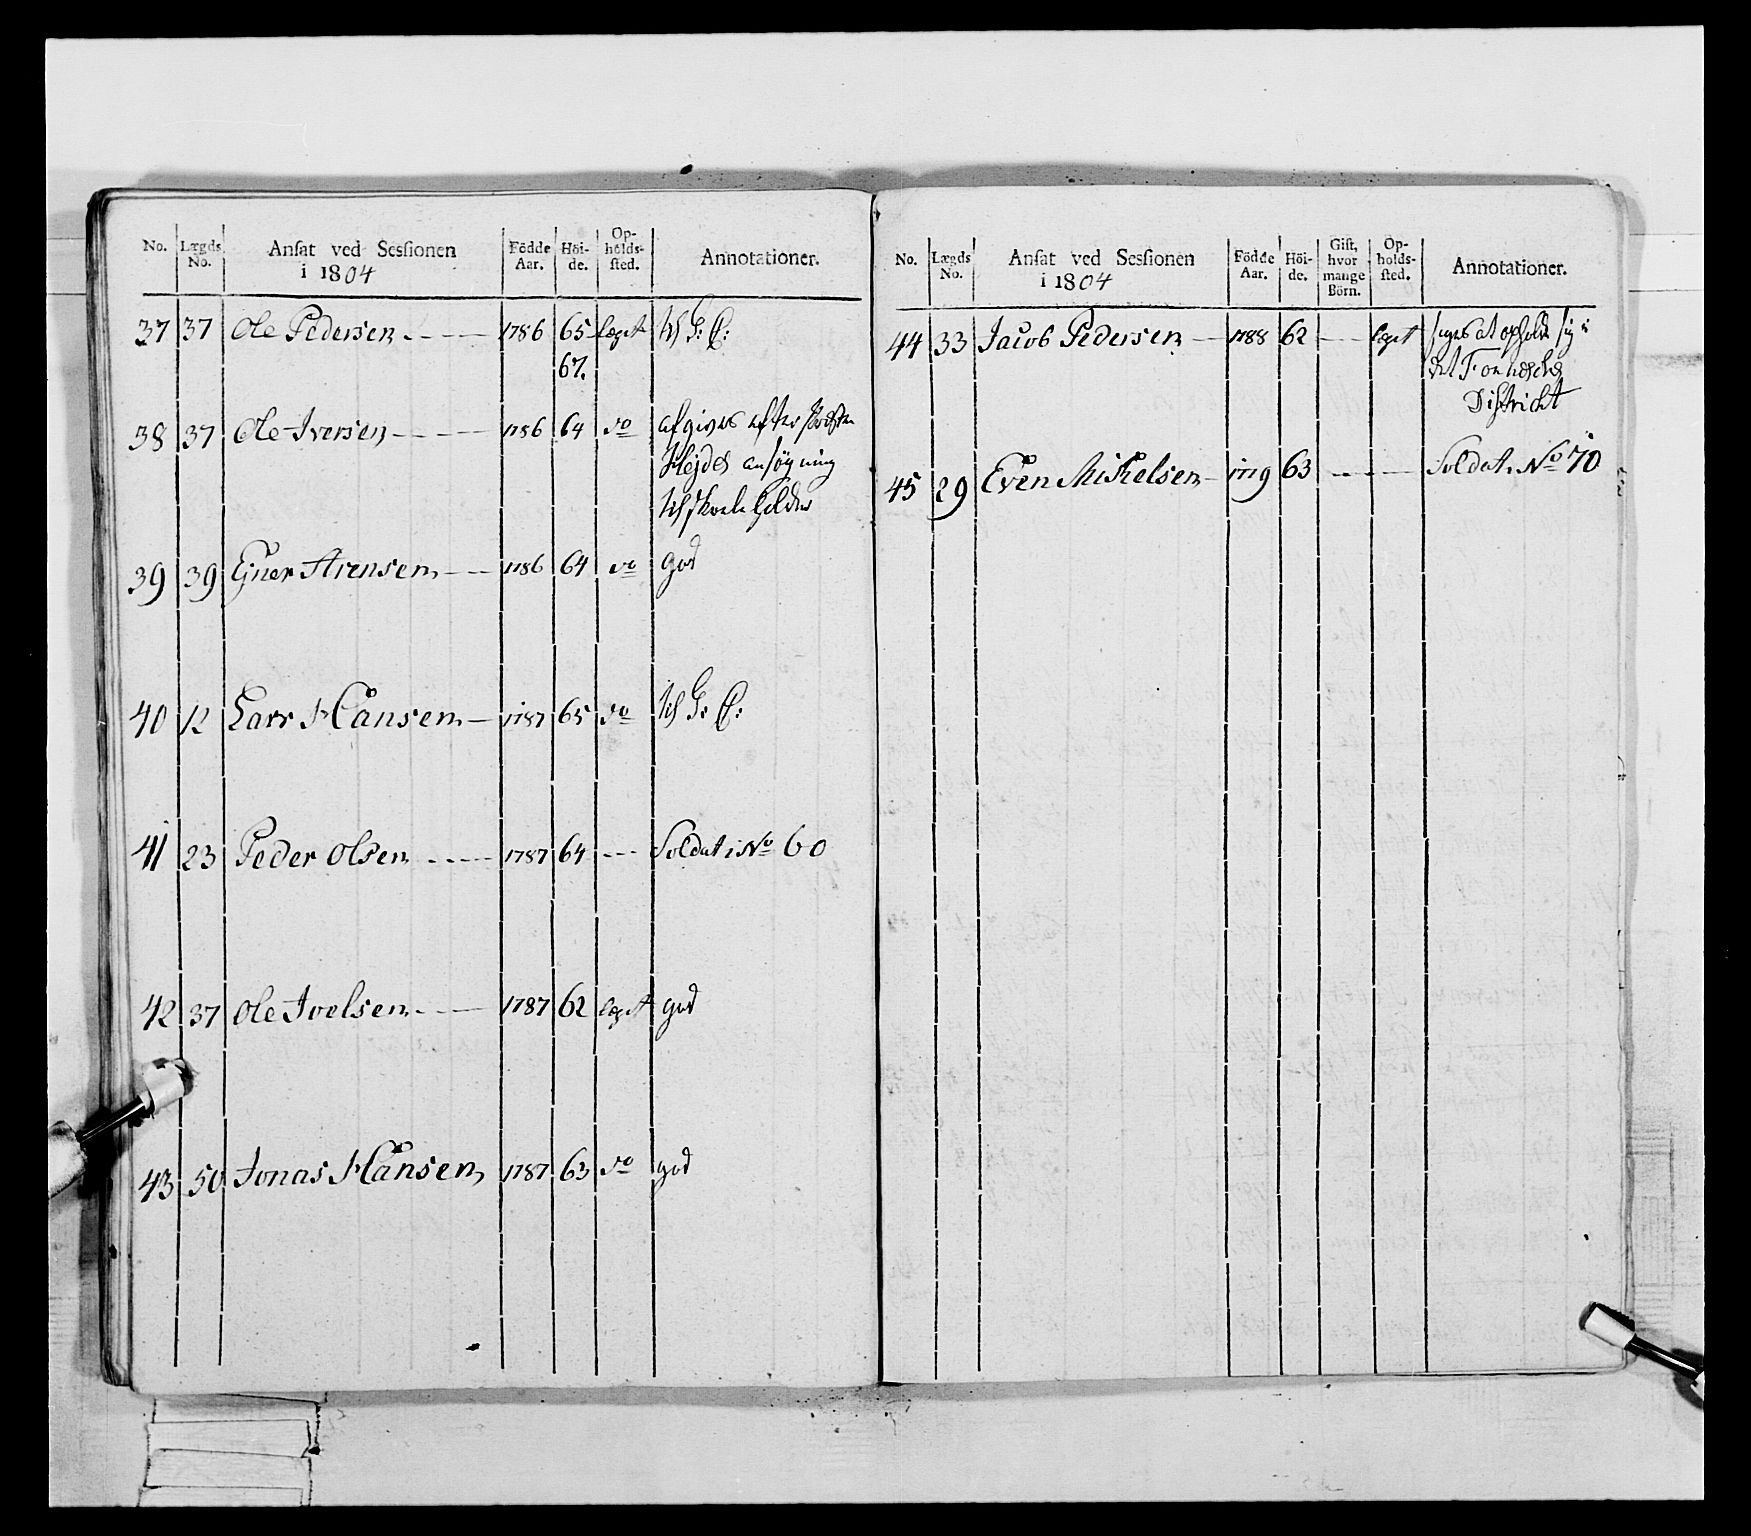 No. Lægds No. Ansat ved Sessionen i 1804 Födde Aar. Höi-de. Op-holds-sted. Annotationer.
37 37 Ole Pedersen 1786 65 læget til G: C:
67.
38 37 Ole Iversen 1786 64 do afgives efter
ansøgning
til skoleholder
39 39 Ejner Arensen 1786 64 do god
40 12 Lars Hansen 1787 65 do til G: C:
41 23 Peder Olsen 1787 64 Soldat i No 60
42 37 Ole Joelsen 1787 62 læget god
43 50 Jonas Hansen 1787 63 do god
No. Lægds No. Ansat ved Sessionen i 1804 Födde Aar. Höi-de. Gift, hvor mange Börn. Op-holds-sted. Annotationer.
44 33 Jacob Pedersen 1788 62 læget siges at opholde sig i
det
District
45 29 Even Mikkelsen 1779 63 Soldat i No 70